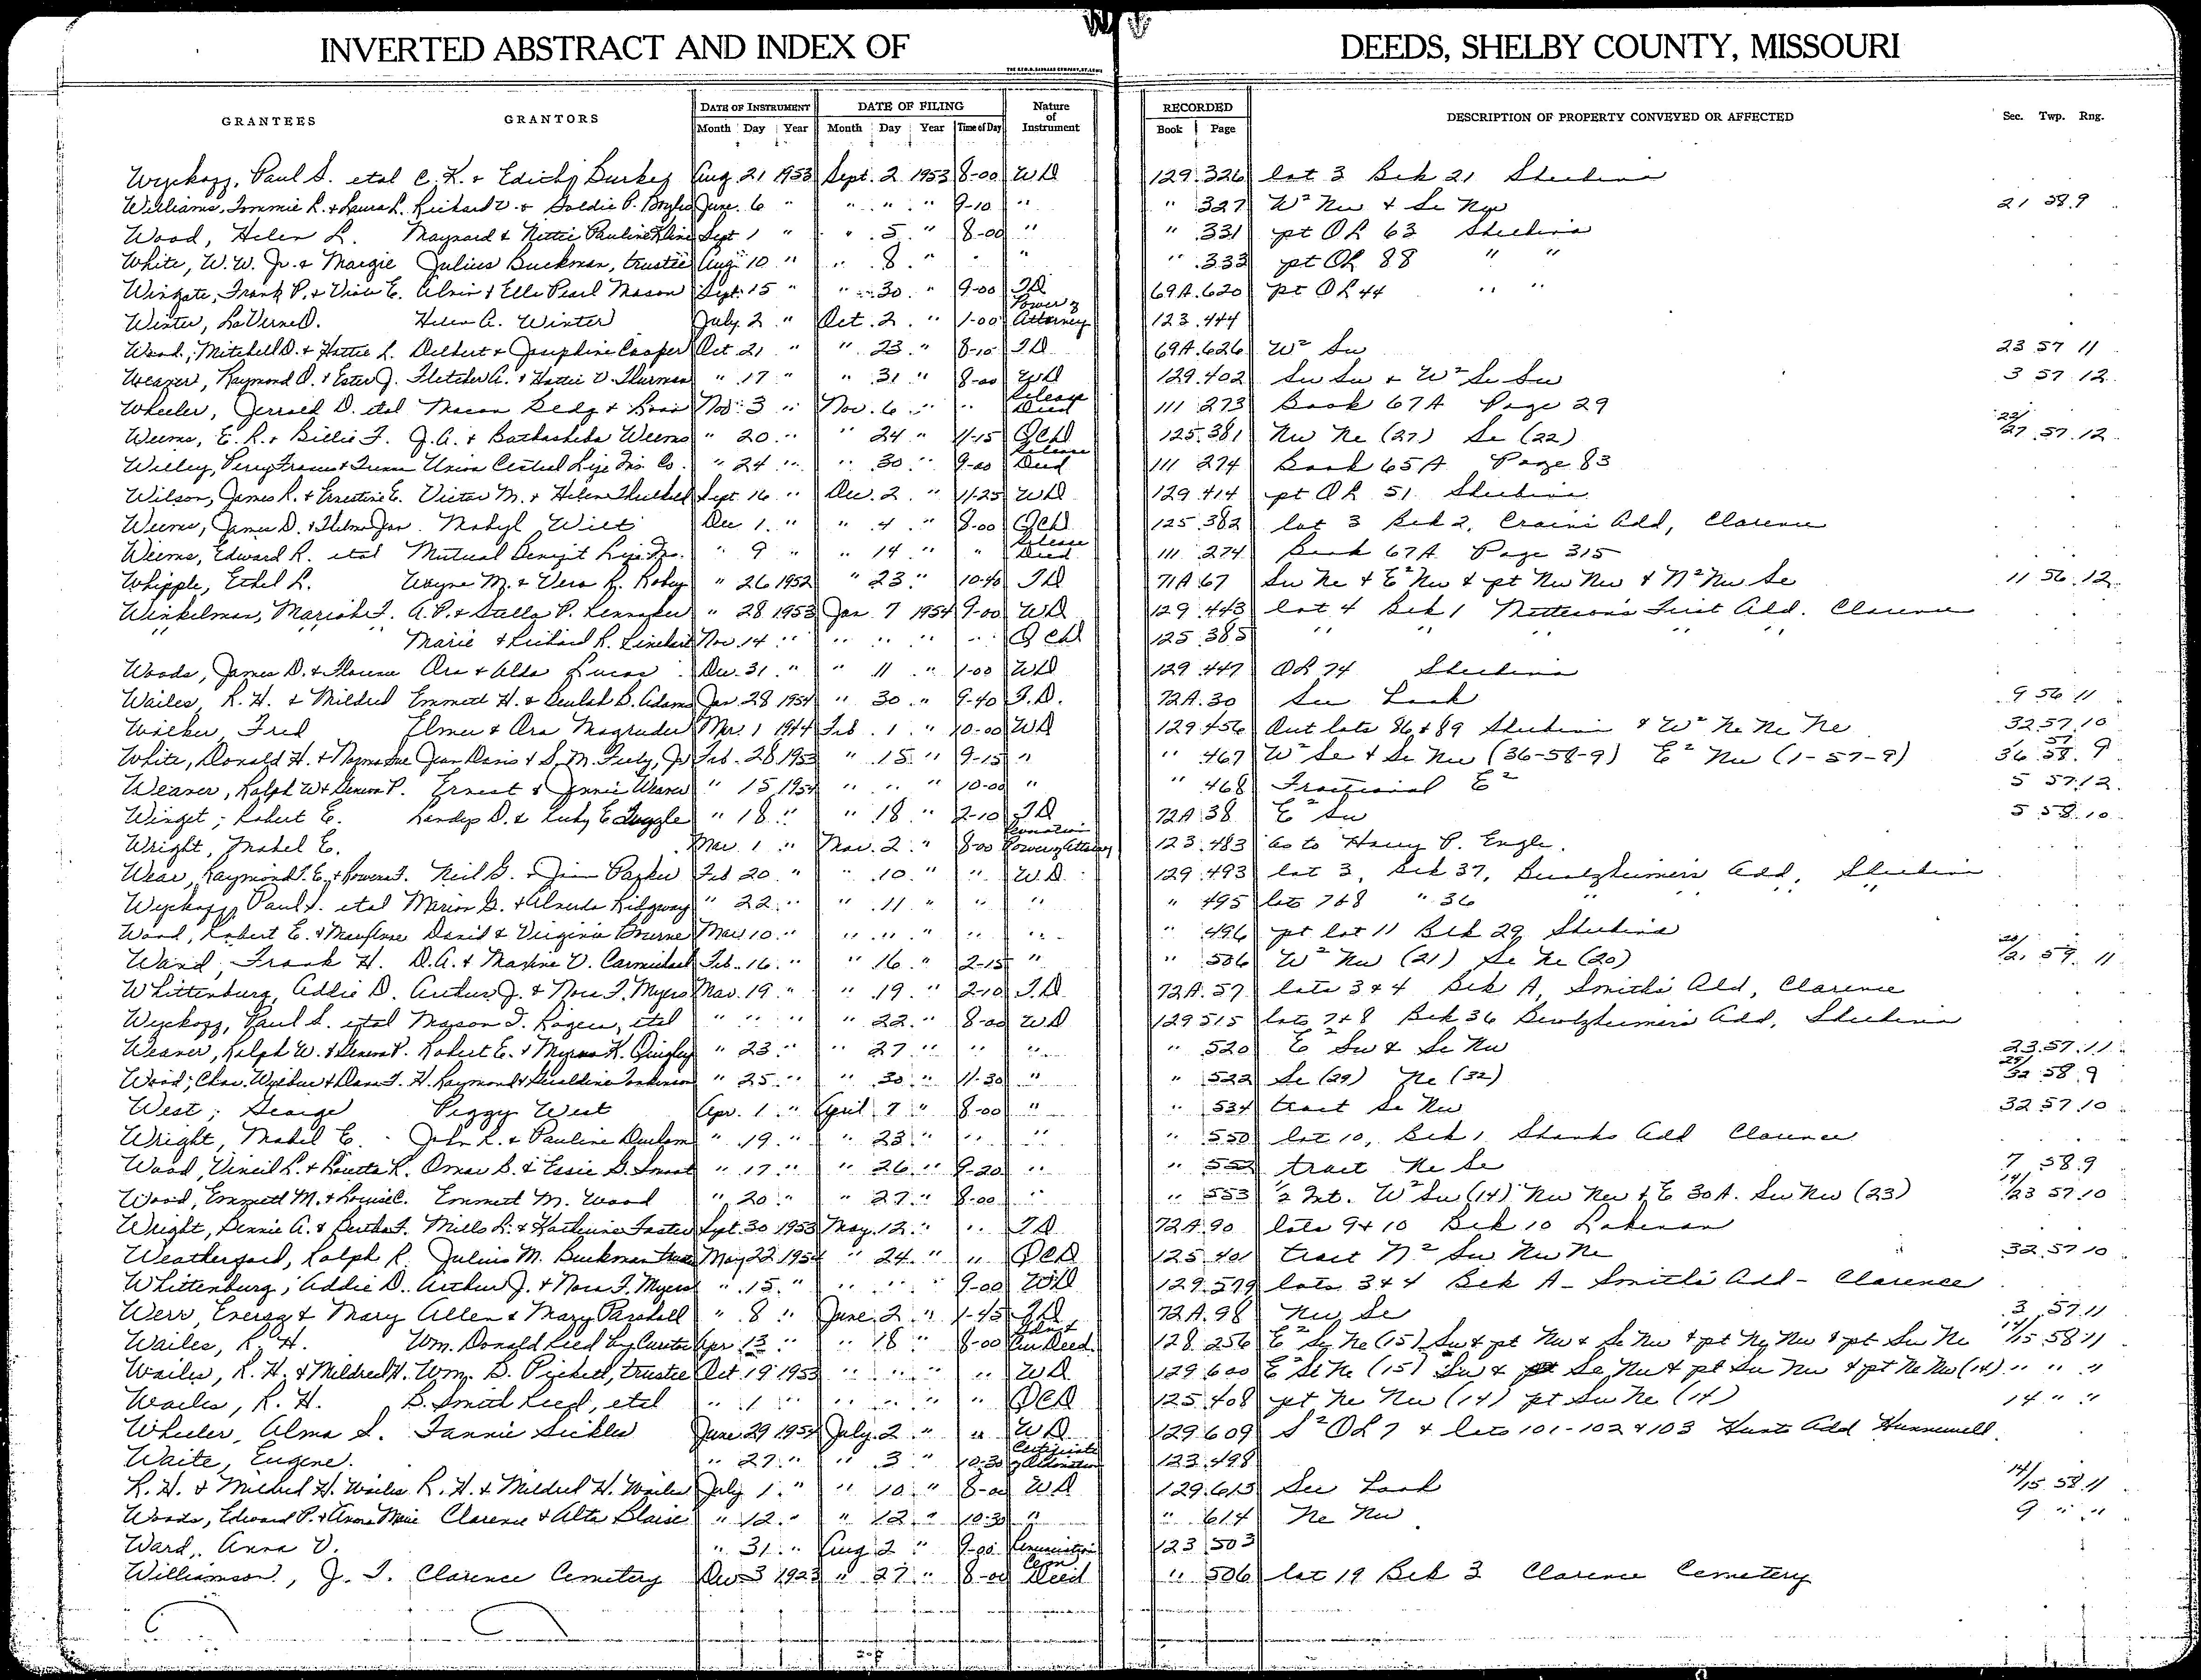 INVERTED ABSTRACT AND INDEX OF DEEDS, SHELBY COUNTY, MISSOURI
GRANTEES GRANTORS DATE OF INSTRUMENT DATE OF FILING Nature of Instrument RECORDED DESCRIPTION OF PROPERTY CONVEYED OR AFFECTED Sec. Twp. Rng.
Month Day Year Month Day Year Time of Day Book Page
Wyckoff, Paul S. etal C. K. & Edith Burkey Aug. 21 1953 Sept. 2 1953 8-00 WD 129.326 lot 3 Bck 21 Shelbina
Williams, Tommie R. & Laura L. Richard V. & Goldie P. June. 6 " " " " 9-10 " " 327 W² Nw & Se Nw 21 58.9
Wood, Helen L. Maynard & Nettie Pauline Kline Sept 1 " " 5 " 8-00 " " 331 pt OL 63 Shelbina
White, W. W. Jr. & Margie Julius Buckman, trustee Aug. 10 " " 8 " " " " 333 pt OL 88 " "
Wingate, Frank P. & Viola E. Alvin & Ella Pearl Mason Sept. 15 " " 30 " 9-00 TD 69A.620 pt OL 44 " "
Winter, LaVerne D. Helen A. Winter July. 2 " Oct. 2 " 1-00 Power of Attorney 123.444
Wood, Mitchell D. & Hattie L. Delbert & Josephine Cooper Oct. 21 " " 23 " 8-10 TD 69A.626 W² Sw 23 57 11
Weaver, Raymond O. & Ester J. Fletcher A. & Hattie V. Thurman " 17 " " 31 " 8-00 WD 129.402 Sw Sw & W² Se Sw 3 57 12
Wheeler, Jerrold D. etal Macon Bldg & Loan Nov. 3 " Nov. 6 " " Release Deed 111 273 Book 67A Page 29
Weems, E. R. & Billie F. J. A. & Bathasheba Weems " 20 " " 24 " 11-15 QCD 125.381 Nw Ne (27) Se (22) 22/27 57.12
Willey, Perry Francis & Union Central Life Ins. Co. " 24 " " 30 " 9-00 Release Deed 111 274 Book 65A Page 83
Wilson, James R. & Ernestine E. Victor M. & Helen Sept. 16 " Dec. 2 " 11-25 WD 129.414 pt OL 51 Shelbina
Weems, James D. & Thelma Jan Mabyl Wilt Dec 1 " " 4 " 8-00 QCD 125.382 lot 3 Bck 2, Crains Add, Clarence
Weems, Edward R. etal Mutual Benefit Life Ins. " 9 " " 14 " " Release Deed 111 274 Book 67A Page 315
Whipple, Ethel L. Wayne M. & Vera K. Roby " 26 1952 " 23 " 10-40 TD 71A.67 Sw Ne & E² Nw & pt Nw Nw & N² Nw Se 11 56.12
Winkelman, Mariah F. A. P. & Stella P. " 28 1953 Jan 7 1954 9-00 WD 129.443 lot 4 Bck 1 First Add. Clarence
" " " Marie & Richard R. Linehart Nov. 14 " " " " " QCD 125.385 " " " " "
Woods, James D. & Florence Ora & Alda Lucas Dec. 31 " " 11 " 1-00 WD 129.447 OL 74 Shelbina
Wailes, R. H. & Mildred Emmett H. & Beulah B. Adams Jan. 28 1954 " 30 " 9-40 T.D. 72A.30 See Book 9 56 11
Walker, Fred Elmer & Ora Magruder Mar. 1 1944 Feb. 1 " 10-00 WD 129.456 Out lots 86 & 89 Shelbina & W² Ne Ne Ne 32 57.10
White, Donald H. & Norma Sue Jean Davis & S. M. Feely, Jr Feb. 28 1953 " 15 " 9-15 " " 467 W² Se & Se Nw (36-58-9) E² Nw (1-57-9) 36 57 58. 9
Weaver, Ralph W & Geneva P. Ernest & Annie Weaver " 15 1954 " " " 10-00 " " 468 Fractional E² 5 57.12.
Winget, Robert E. Landis D. & Ruby E Tuggle " 18 " " 18 " 2-10 TD 72A.38 E² Sw 5 58.10
Wright, Mabel E. Mar. 1 " Mar. 2 " 8-00 Revocation Power of Attorney 123.483 as to Harry P. Engle.
Wear, Raymond E. & Rowena F. Neil G. & Jim Parker Feb 20 " " 10 " " WD 129.493 lot 3, Bck 37, Benlzheimer's Add, Shelbina
Wyckoff, Paul S. etal Marion G. & Alverda Ridgway " 22 " " 11 " " " " 495 lots 7 & 8 " 36 " " "
Wood, Robert E. & David & Virginia Bourne Mar. 10 " " " " " " " 496 pt lot 11 Bck 29 Shelbina
Wand, Frank H. D. A. & Maxine V. Carmichael Feb. 16 " " 16 " 2-15 " " 506 W² Nw (21) Se Ne (20) 20/21 59. 11
Whittenburg, Addie D. Arthur J. & Nora F. Myers Mar. 19 " " 19 " 2-10 TD 72A.57 lots 3 & 4 Bck A, Smith's Add, Clarence
Wyckoff, Paul S. etal Mason F. Rogers, etal " " " " 22 " 8-00 WD 129 515 lots 7 & 8 Bck 36 Benlzheimer's Add, Shelbina
Weaver, Ralph W. & Geneva P. Robert E. & Myrna K. Quigley " 23 " " 27 " " " " 520 E² Sw & Se Nw 23.57.11
Wood, Chas. Wilbur & Dana F. H. Raymond & Geraldine Tonkinson " 25 " " 30 " 11-30 " " 522 Se (29) Ne (32) 29/32 58.9
West, George Peggy West Apr. 1 " April 7 " 8-00 " " 534 tract Se Nw 32 57.10
Wright, Mabel E. John L. & Pauline Durham " 19 " " 23 " " " " 550 lot 10, Bck 1 Shanks Add Clarence
Wood, Vincil L. & Loretta K. Omar B. & Essie G. Smoot " 17 " " 26 " 9-20 " " 552 tract Ne Se 7 58.9
Wood, Emmett M. & Louise C. Emmett M. Wood " 20 " " 27 " 8-00 " " 553 ½ Int. W² Sw (14) Nw Nw & E 30A. Sw Nw (23) 14/23 57.10
Wright, Bennie A. & Bertha F. Mills L. & Katherine Foster Sept. 30 1953 May. 12 " " TD 72A.90 lots 9 & 10 Bck 10 Lakenan
Weatherford, Ralph R. Julius M. Buckman trus May 22 1954 " 24 " " QCD 125.401 tract N² Sw Nw Ne 32.57 10
Whittenburg, Addie D. Arthur J. & Nora F. Myers " 15 " " " " 9-00 WD 129.579 lots 3 & 4 Bck A - Smith's Add - Clarence
Werr, Everett & Mary Allen & Mary Parshall " 8 " June. 2 " 1-45 TD 72A.98 Nw Se 3 57.11
Wailes, R. H. Wm. Donald Reed by Curator Apr. 13 " " 18 " 8-00 Deed 128.256 E² Se Ne (15) Sw & pt Nw & Se Nw & pt Ne Nw & pt Sw Ne 14/15 58 11
Wailes, R. H. & Mildred H. Wm. B. Pickett, trustee Oct. 19 1953 " " " " WD 129.600 E² Se Ne (15) Sw & Se Nw & pt Sw Nw & pt Ne Nw (14) " " "
Wailes, R. H. B. Smith Reed, etal " 1 " " " " " QCD 125.408 pt Ne Nw (14) pt Sw Ne (14) 14 " "
Wheeler, Alma S. Fannie Sickles June 29 1954 July. 2 " " WD 129.609 S² OL 7 & lots 101-102 & 103 Hunts Add Hunnewell
Waite, Eugene. " 27 " " 3 " 10-30 Certificate of Adoption 123.498
R. H. & Mildred H. Wailes R. H. & Mildred H. Wailes July 1 " " 10 " 8-00 WD 129.613 See Book 14/15 58.11
Woods, Edward P. & Anna Marie Clarence & Alta Blaise " 12 " " 12 " 10-30 " " 614 Ne Nw 9 " "
Ward, Anna V. " 31 " Aug 2 " 9-00 Renunciation 123 503
Williamson, J. T. Clarence Cemetery Dec 3 1923 " 27 " 8-00 Cem Deed " 506 lot 19 Bck 3 Clarence Cemetery